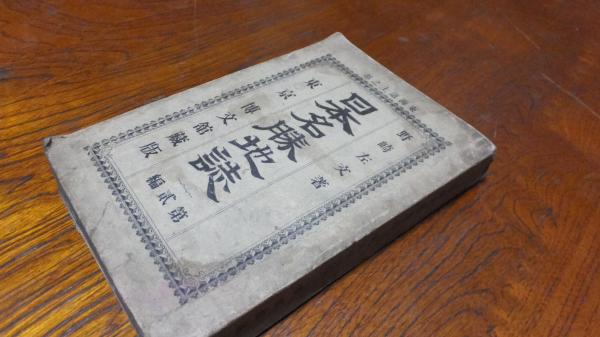 野崎左文著
日本名勝地誌
第貳編
東京博文館藏版